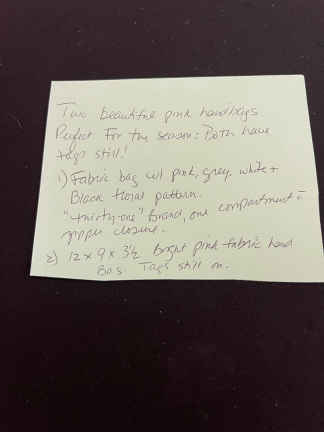 Two beautiful pink handbags
Perfect For the season: Both have
tags still!
1) Fabric bag w/ pink, grey, white +
Black floral pattern.
"thirty-one" brand, one compartment
zipper closure.
2) 12 x 9 x 3½ bright pink fabric hand
Bag Tags still on.